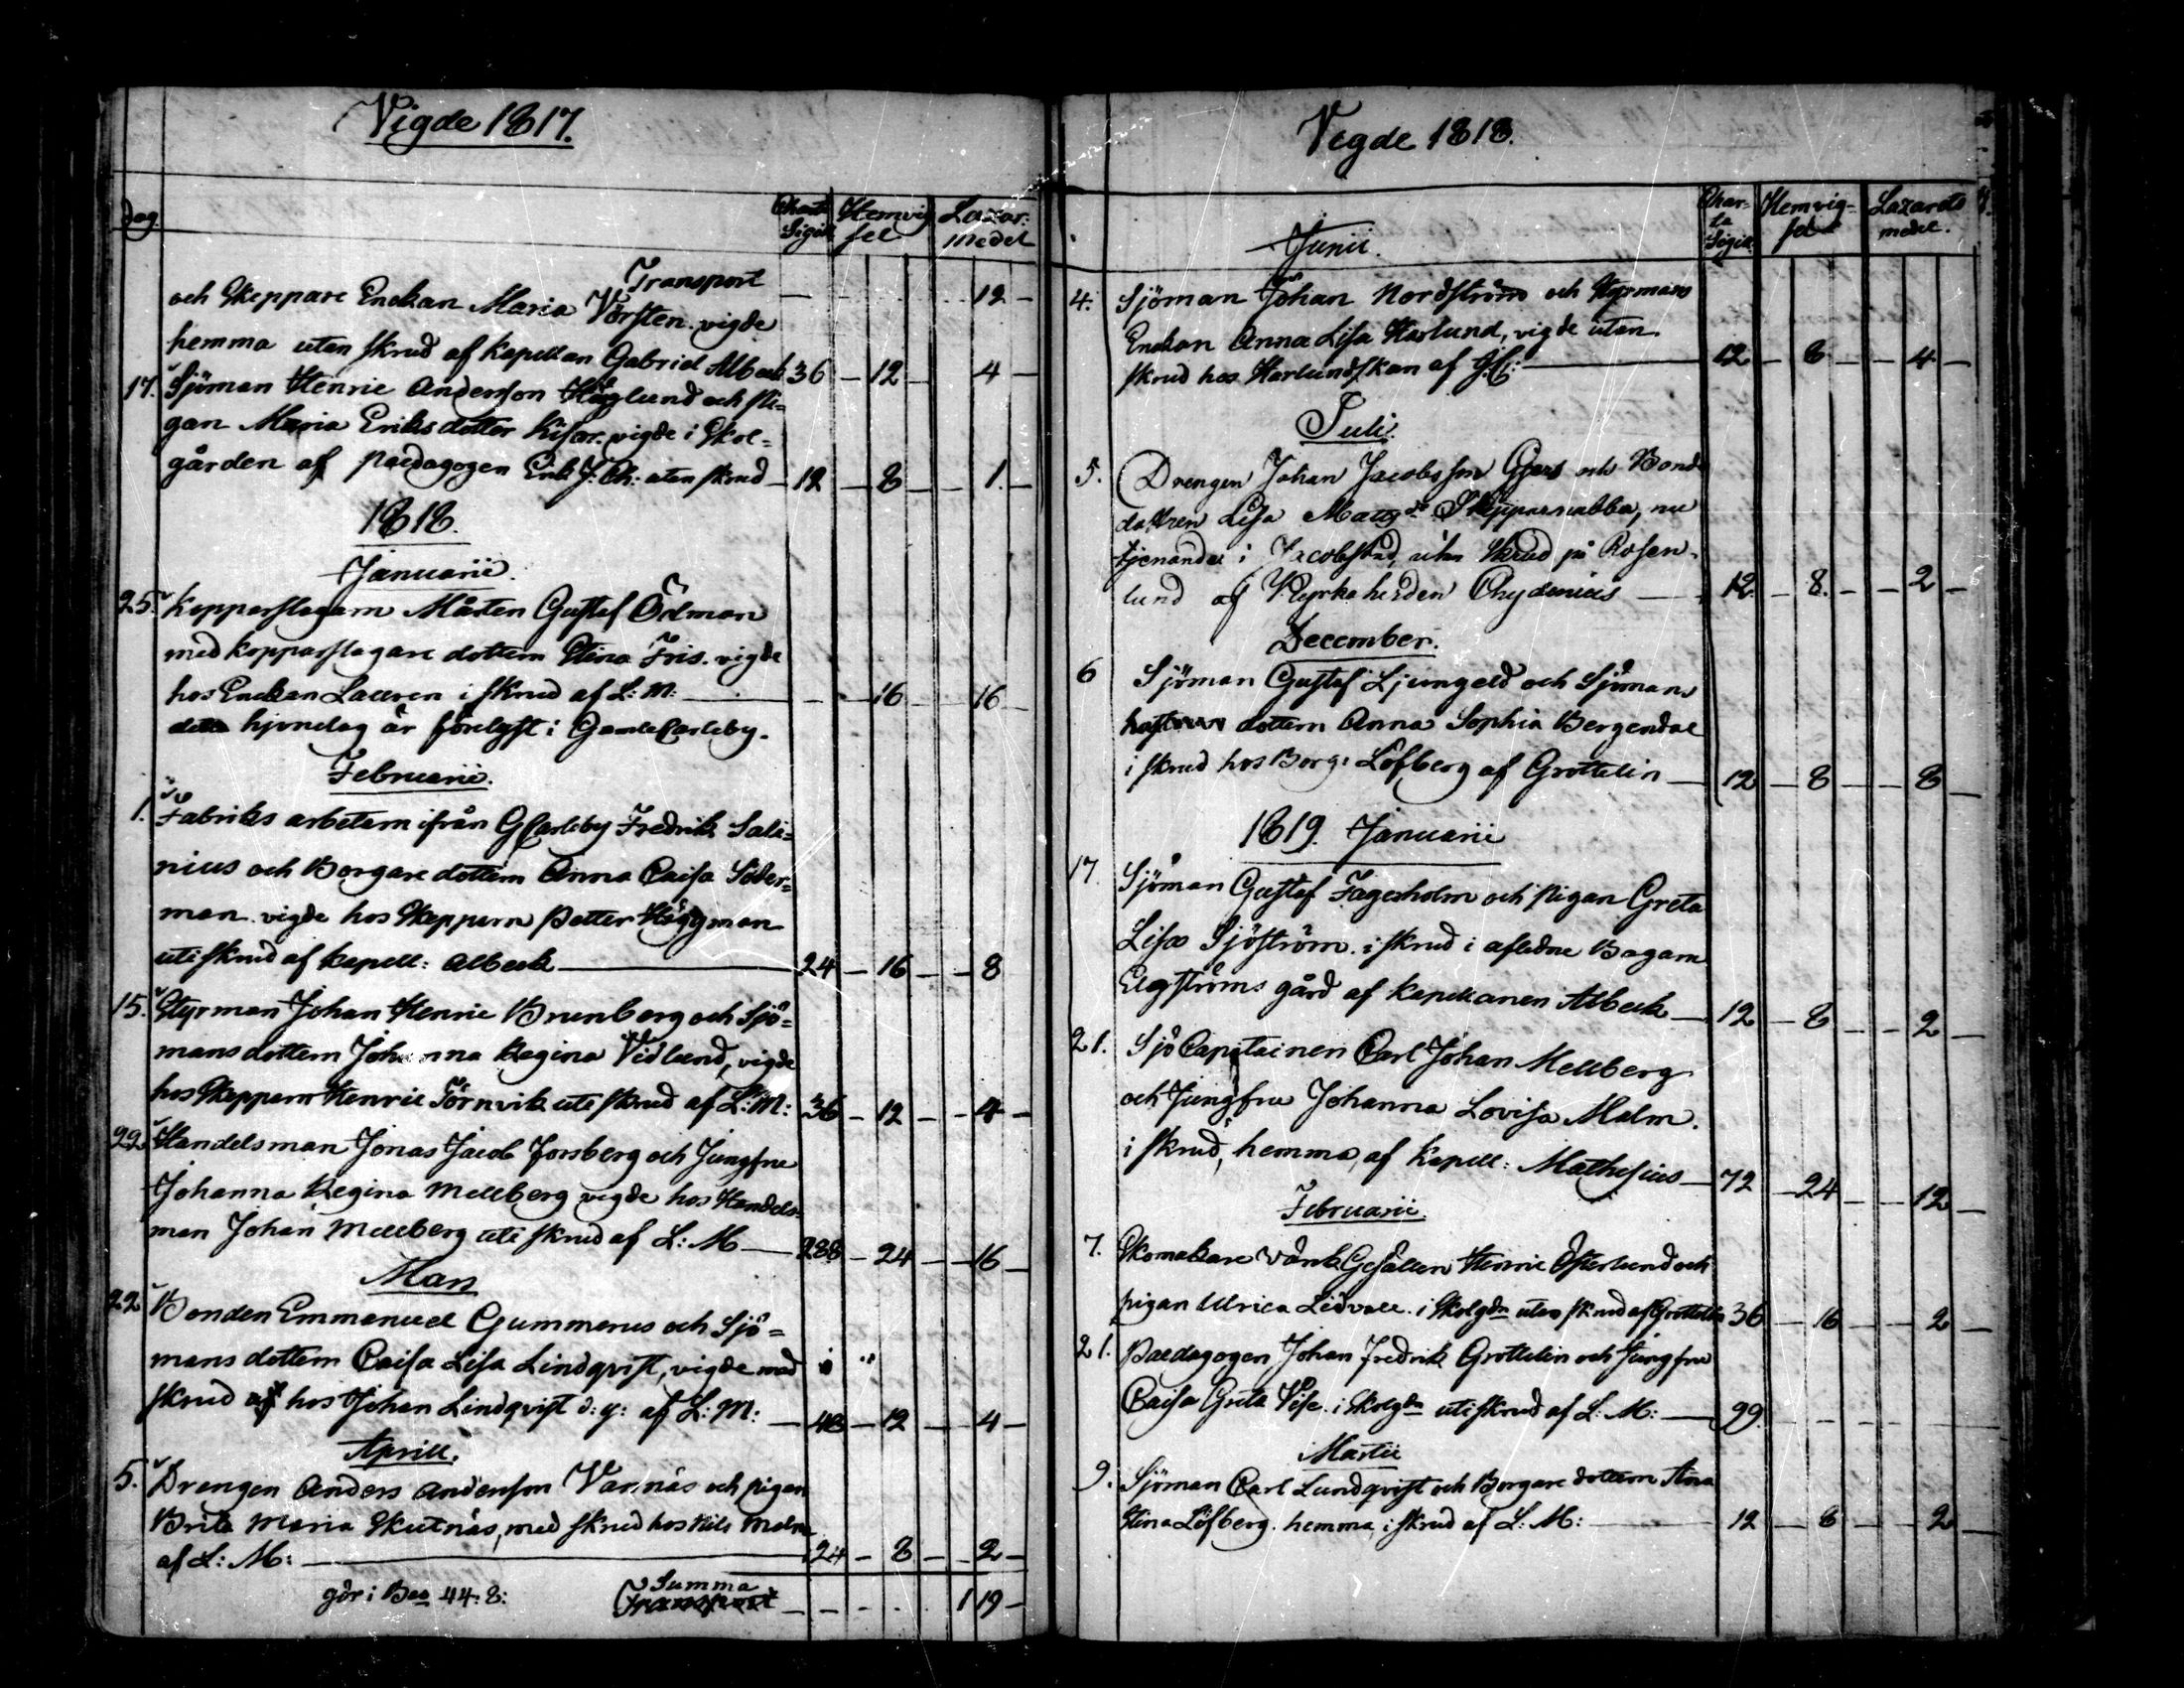 Vigde 1817.
dag. Charta Sigill Hemvig sel Lazar. medel
Transport — 12 —
och Skeppare Enckan Maria Vörsten vigde
hemma utan skrud af kapellan Gabriel Albeck 36 — 12 — 4 —
17. Sjöman Henric Andersson Höglund och pi=
gan Maria Eriksdotter vigde i Skol=
gården af paedagogen Enb. J. Ch: utan skrud — 12 — 8 — 1. —
1818.
Januarii.
25. Kopparslagarn Mårten Gustaf Ödman
med kopparslagare dottern Stina Fris. vigde
hos Enckan Lauren i skrud af L: M: — 16 — 16 —
detta hjonelag är förelyst i GamleCarleby.
Februarii.
1. Fabriks arbetarn ifrån GCarleby Fredrik Sali=
nius och Borgare dottern Anna Caisa Söder=
man. vigde hos Skeppern Petter Häggman
uti skrud af kapell: Albeck — 24 — 16 — 8
15. Styrman Johan Henric Brunberg och Sjö=
mans dottern Johanna Regina Vidlund, vigde
hos Skeppern Henric Törnvik uti skrud af L: M: 36 — 12 — 4 —
22. Handelsman Jonas Jacob Forsberg och Jungfru
Johanna Regina Mellberg vigde hos Handels=
man Johan Mellberg uti skrud af L: M — 288 — 24 — 16 —
Mars
22 Bonden Emmanuel Gummerus och Sjö=
mans dottern Caisa Lisa Lindqvist, vigde med
skrud hos Johan Lindqvist d: y: af L: M: — 48 — 12 — 4 —
Aprill.
5. Drengen Anders Andersson Varnäs och pigan
Brita Maria Skutnäs, med skrud hos Nils Malm
af L: M: — 24 — 8 — 2 —
gör i Bco 44: 8: Summa
Transport — 1 19 —
Vigde 1818.
Charta Sigill. Hemvig- sel Lazarets medel.
Junii.
4. Sjöman Johan Nordström och Styrmans
Enckan Anna Lisa Harlund, vigde utan
skrud hos Harlundskan af — 12 — 8 — 4 —
Juli.
5. Drengen Johan Jacobsson Gers och Bonde
dottren Lisa Mattsdr Skepparnabba, nu
tjenande i Jacobstad, utan skrud på Rosen-
lund af Kyrkoherden Chydenius — 12. — 8. — 2 —
December.
6 Sjöman Gustaf Ljungeld och Sjömans
dottern Anna Sophia Bergendal
i skrud hos Borg: Löfberg af Grottelin — 12 — 8 — 8 —
1819. Januarii
17. Sjöman Gustaf Fagerholm och pigan Greta
Lisa Sjöström. i skrud i afledne Bagarn
Elgströms gård af Kapellanen Albeck — 12 — 8 — 2 —
21. Sjö Capitainen Carl Johan Mellberg
och Jungfru Johanna Lovisa Malm.
i skrud, hemma, af Kapell: Mathesius — 72 — 24 — 12 —
Februarii.
7. Skomakare Gesällen Henric Österlund och
pigan Ulrica Lidvall. i Skolgdn utan skrud af Grottelin 36 — 16 — 2 —
21. Paedagogen Johan Fredrik Grottelin och Jungfru
Caisa Greta i Skolgdn uti skrud af L: M: — 99.
Martii
9. Sjöman Carl Lundqvist och Borgare dottern Anna
Stina Löfberg. hemma, i skrud af L: M: — 12 — 8 — 2 —